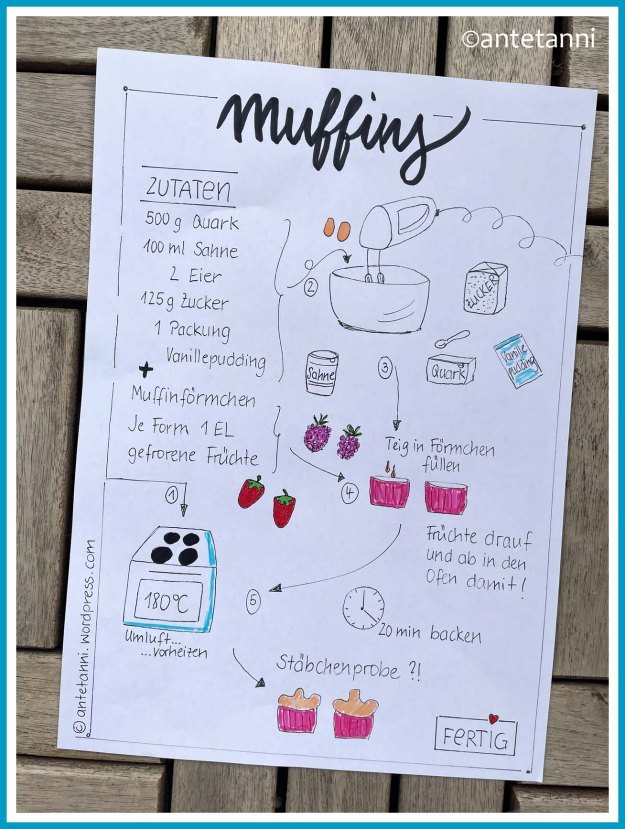 ©antetanni
muffins
ZUTATEN
500 g Quark
100 ml Sahne
2 Eier
125 g Zucker
1 Packung
Vanillepudding
+
Muffinförmchen
Je Form 1 EL
gefrorene Früchte
2
ZUCKER
Sahne
3
Quark
Vanille
pudding
Teig in Förmchen
füllen
4
1
Früchte drauf
und ab in den
Ofen damit!
180°C
5
Umluft...
...vorheizen
20 min backen
Stäbchenprobe ?!
FERTIG
© antetanni.wordpress.com